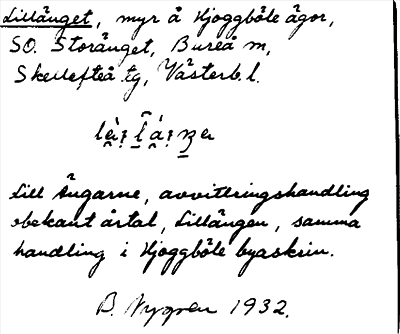 Lillänget, myr å Hjoggböle ägor,
SO. Storänget, Bureå sn,
Skellefteå tg, Västerb. l.
Lill Ängarne, avvittringshandling
obekant årtal, Lillängen, samma
handling i Hjoggböle byaskrin.
B. Nygren 1932.